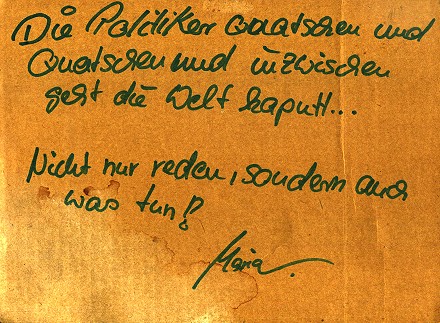 Die Politiker quatschen und
quatschen und inzwischen
geht die Welt kaputt...
Nicht nur reden, sondern auch
was tun!
Maria.